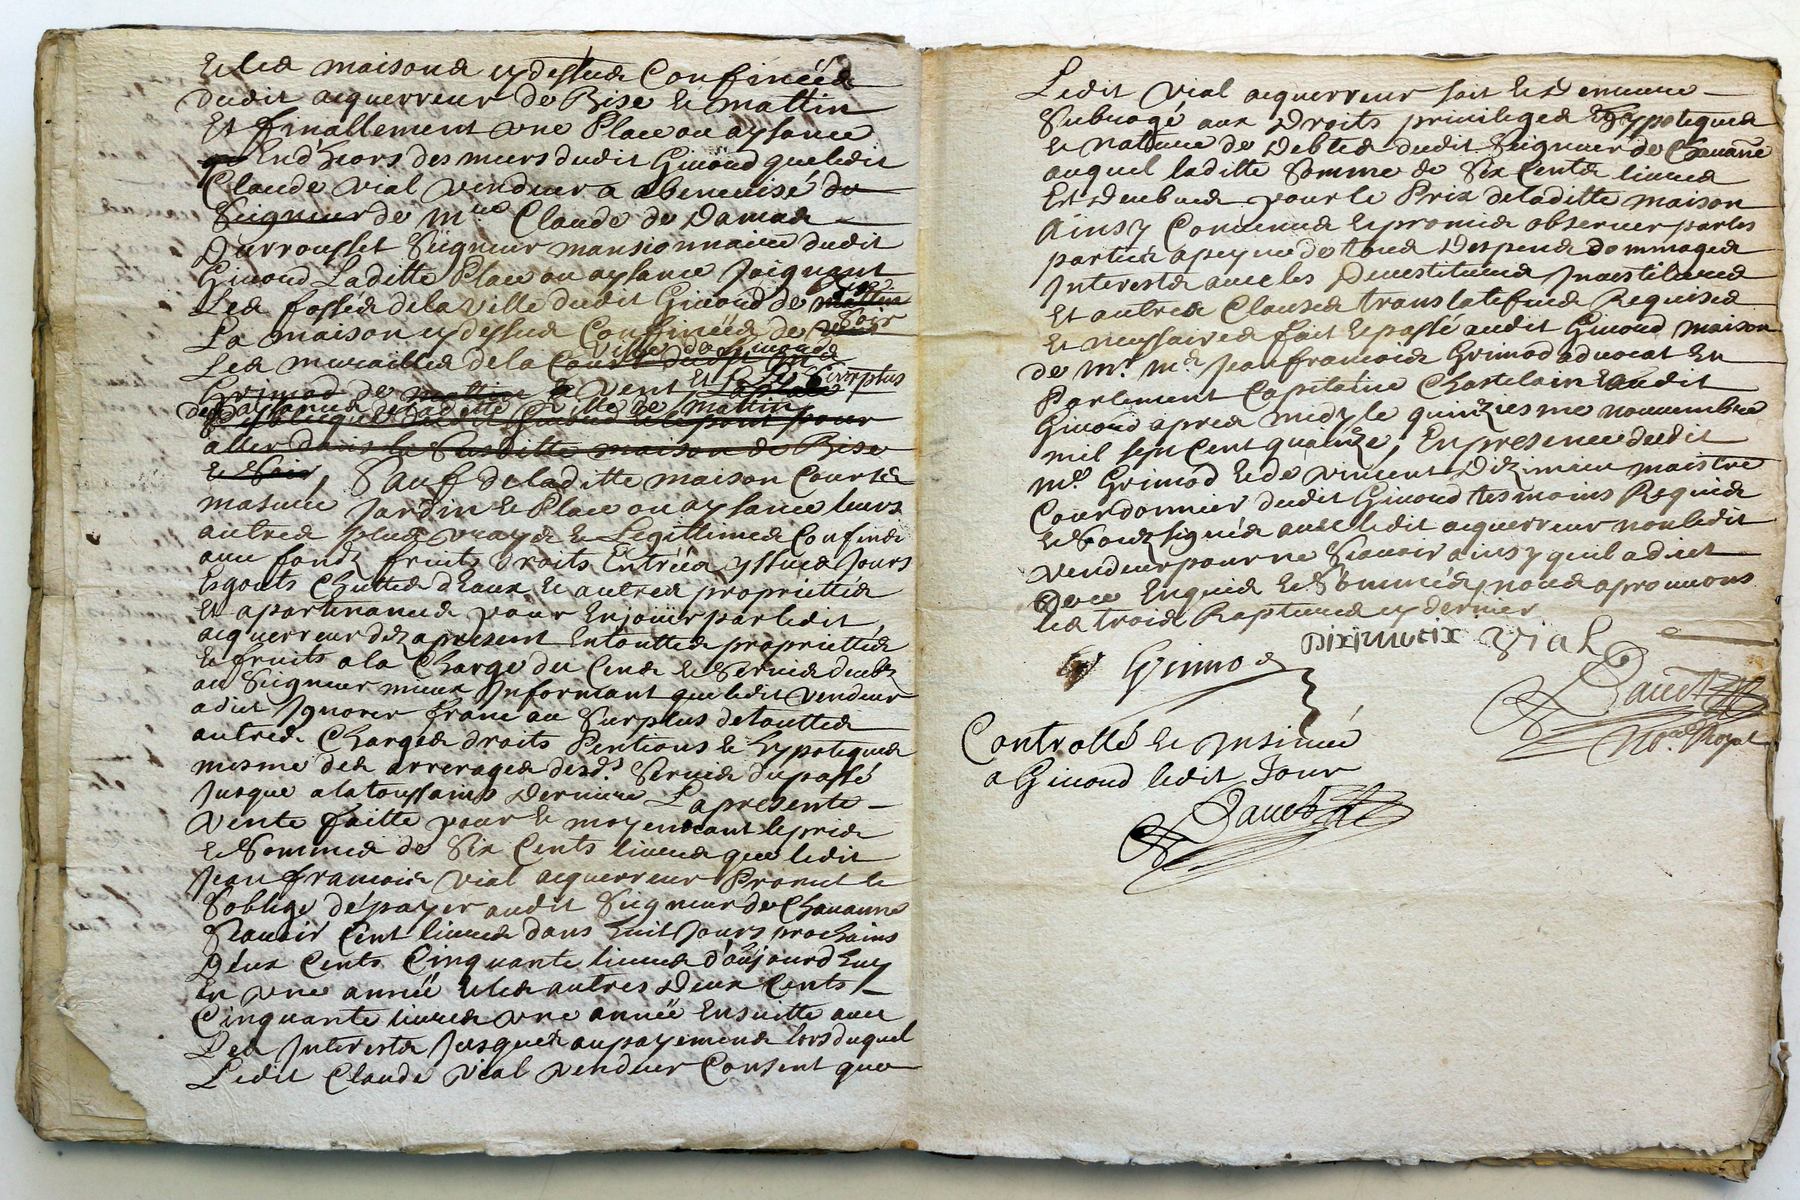 et les maisons cy dessus Confinées
dudit acquerreur de Bise et mattin
Et finallement une Place ou aysance
En d'hiors des murs dudit Giuord que ledit
Claude vial vendeur a abenevisé du
Seigneur de Mre Claude de Damas
Durrousset Seigneur mansionnaire dudit
Giuord Laditte Place ou aysance Joignant
Les fossés de la ville dudit Giuord de mattin
La maison cy dessus Confinées de soir
Les murailles de la ville de Giuord
Grimod de mattin et vent Et Le Surplus
des aysances de laditte ville de mattin
aller dans la Susditte maison de Bise
et Soir, Sauf de laditte maison Courts
masure Jardin et Place ou aysance leurs
autres plus vrays et Legittimes Confins
avec fondz fruits droits Entrées yssues Jours
Esgouts Chuttes d'Eaux et autres propriettés
Et apartenances pour En jouir par ledit
acquerreur dez a present En touttes propriettés
et fruits a la Charge du Cens et Servis deubz
au Seigneur mieux Informant que ledit vendeur
a dit Ignorer franc au Surplus de touttes
autres Charges droits Pentions et hypoteques
mesme des arrerages desd.s Servis du passé
Jusque a la toussaints derniere La presente
vente faitte pour et moyennant le prix
et Somme de Six Cents livres que ledit
Jean francois vial acquerreur Promet et
S'oblige de payer audit Seigneur de Chavanne
Scavoir Cent livres dans huit Jours prochains
Deux Cents Cinquante livres d'aujourdhuy
En une année et les autres Deux Cents
Cinquante livres une année Ensuitte avec
Les Interests Jusques au payement lors duquel
Ledit Claude vial vendeur Consent que
Ledit vial acquerreur soit et demeure
Subrogé aux Droits privileges Et hypoteques
et nature de Debtes dudit Seigneur de Chavanne
auquel laditte Somme de Six Cents livres
Est Deubue pour le Prix de laditte maison
Ainsy Convenu et promis observer par les
parties a peyne de tous Despens dommages
Interests avec les Devestitures Investitures
Et autres Clauses translatifves Requises
Et necessaires fait et passé audit Giuord maison
de Mr Me Jean francois Grimod advocat En
Parlement Capitaine Chastelain dudit
Giuord apres midy le quinziesme novembre
mil sept cent quatorze, En presence dudit
Me Grimod et de vincent Diximieu maistre
Courdonnier dudit Giuord tesmoins Requis
et Soubzsignés avec ledit acquerreur non ledit
vendeur pour ne Scavoir ainsy quil a dit
de ce Enquis et Sommés, nous aprouvons
les trois Raptures cy dernier
Grimod Diximieix vial
Dauet
No.re Royal
Controllé et Insinué
a Giuord ledit Jour
Dauet